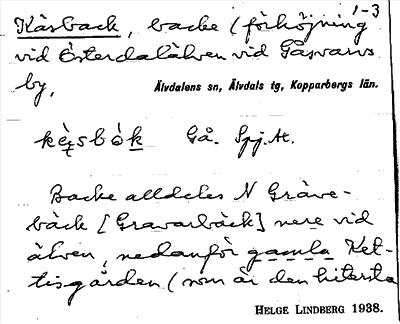 1-3
Kåsback, backe (förhöjning
vid Österdalälven vid Gåsvarvs
by,
Älvdalens sn, Älvdals tg, Kopparbergs län.
Gå. Spj. At.
Backe alldeles N Gråve-
bäck [Gravarbäck] nere vid
älven, nedanför gamla Ket-
tisgården (som är den hitersta
HELGE LINDBERG 1938.